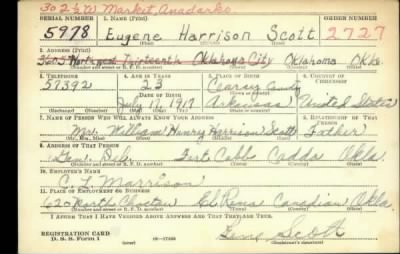 302½ W Market, Anadarko
SERIAL NUMBER 1. NAME (Print) ORDER NUMBER
5978 Eugene Harrison Scott 2727
(First) (Middle) (Last)
2. ADDRESS (Print)
Northwest Thirteenth Oklahoma City Oklahoma Okla.
3. TELEPHONE 4. AGE IN YEARS 5. PLACE OF BIRTH 6. COUNTRY OF CITIZENSHIP
57392 23 County
DATE OF BIRTH
July 16, 1917 Arkansas United States
(Exchange) (Number) (Mo.) (Day) (Yr.) (State or country)
7. NAME OF PERSON WHO WILL ALWAYS KNOW YOUR ADDRESS 8. RELATIONSHIP OF THAT PERSON
Mr. William Henry Harrison Scott Father
(Mr., Mrs., Miss) (First) (Middle) (Last)
9. ADDRESS OF THAT PERSON
Gen. Del. Fort Cobb Caddo Okla.
(Number and street or R. F. D. number) (Town) (County) (State)
10. EMPLOYER'S NAME
C. L. Morrison
11. PLACE OF EMPLOYMENT OR BUSINESS
620 North Choctaw El Reno Canadian Okla
(Number and street or R. F. D. number) (Town) (County) (State)
I AFFIRM THAT I HAVE VERIFIED ABOVE ANSWERS AND THAT THEY ARE TRUE.
REGISTRATION CARD
D. S. S. Form 1 Gene Scott
(Registrant's signature)